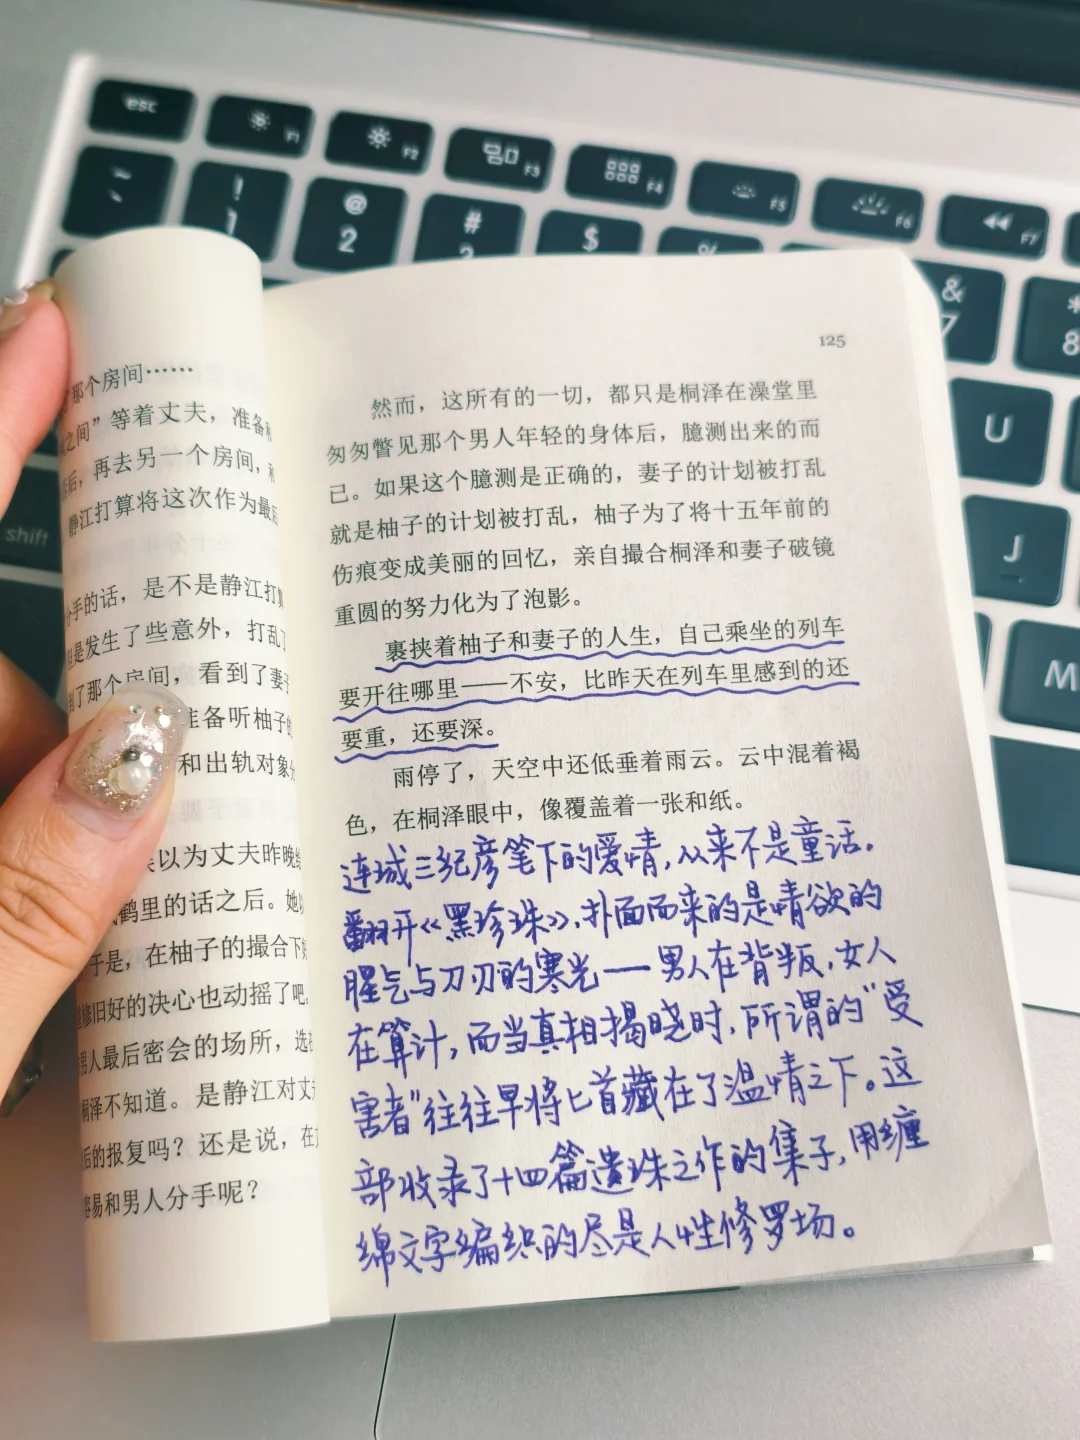 esc
F1
F2
F3
F4
F5
F6
F7
~
!
1
@
2
#
$
%
&
7
*
8
U
J
M
shift
那个房间……
之间”等着丈夫，准备
后，再去另一个房间，
静江打算将这次作为最后
手的话，是不是静江打算
但是发生了些意外，打乱了
到了那个房间，看到了妻子
准备听柚子的
和出轨对象分
以为丈夫昨晚
鹤里的话之后。她
于是，在柚子的撮合下
重修旧好的决心也动摇了吧。
男人最后密会的场所，选
桐泽不知道。是静江对丈
后的报复吗？还是说，在
容易和男人分手呢？
125
然而，这所有的一切，都只是桐泽在澡堂里
匆匆瞥见那个男人年轻的身体后，臆测出来的而
己。如果这个臆测是正确的，妻子的计划被打乱
就是柚子的计划被打乱，柚子为了将十五年前的
伤痕变成美丽的回忆，亲自撮合桐泽和妻子破镜
重圆的努力化为了泡影。
裹挟着柚子和妻子的人生，自己乘坐的列车
要开往哪里——不安，比昨天在列车里感到的还
要重，还要深。
雨停了，天空中还低垂着雨云。云中混着褐
色，在桐泽眼中，像覆盖着一张和纸。
连城三纪彦笔下的爱情，从来不是童话。
翻开《黑珍珠》，扑面而来的是情欲的
腥气与刀刃的寒光——男人在背叛，女人
在算计，而当真相揭晓时，所谓的“受
害者”往往早将匕首藏在了温情之下。这
部收录了十四篇遗珠之作的集子，用缠
绵文字编织的尽是人性修罗场。